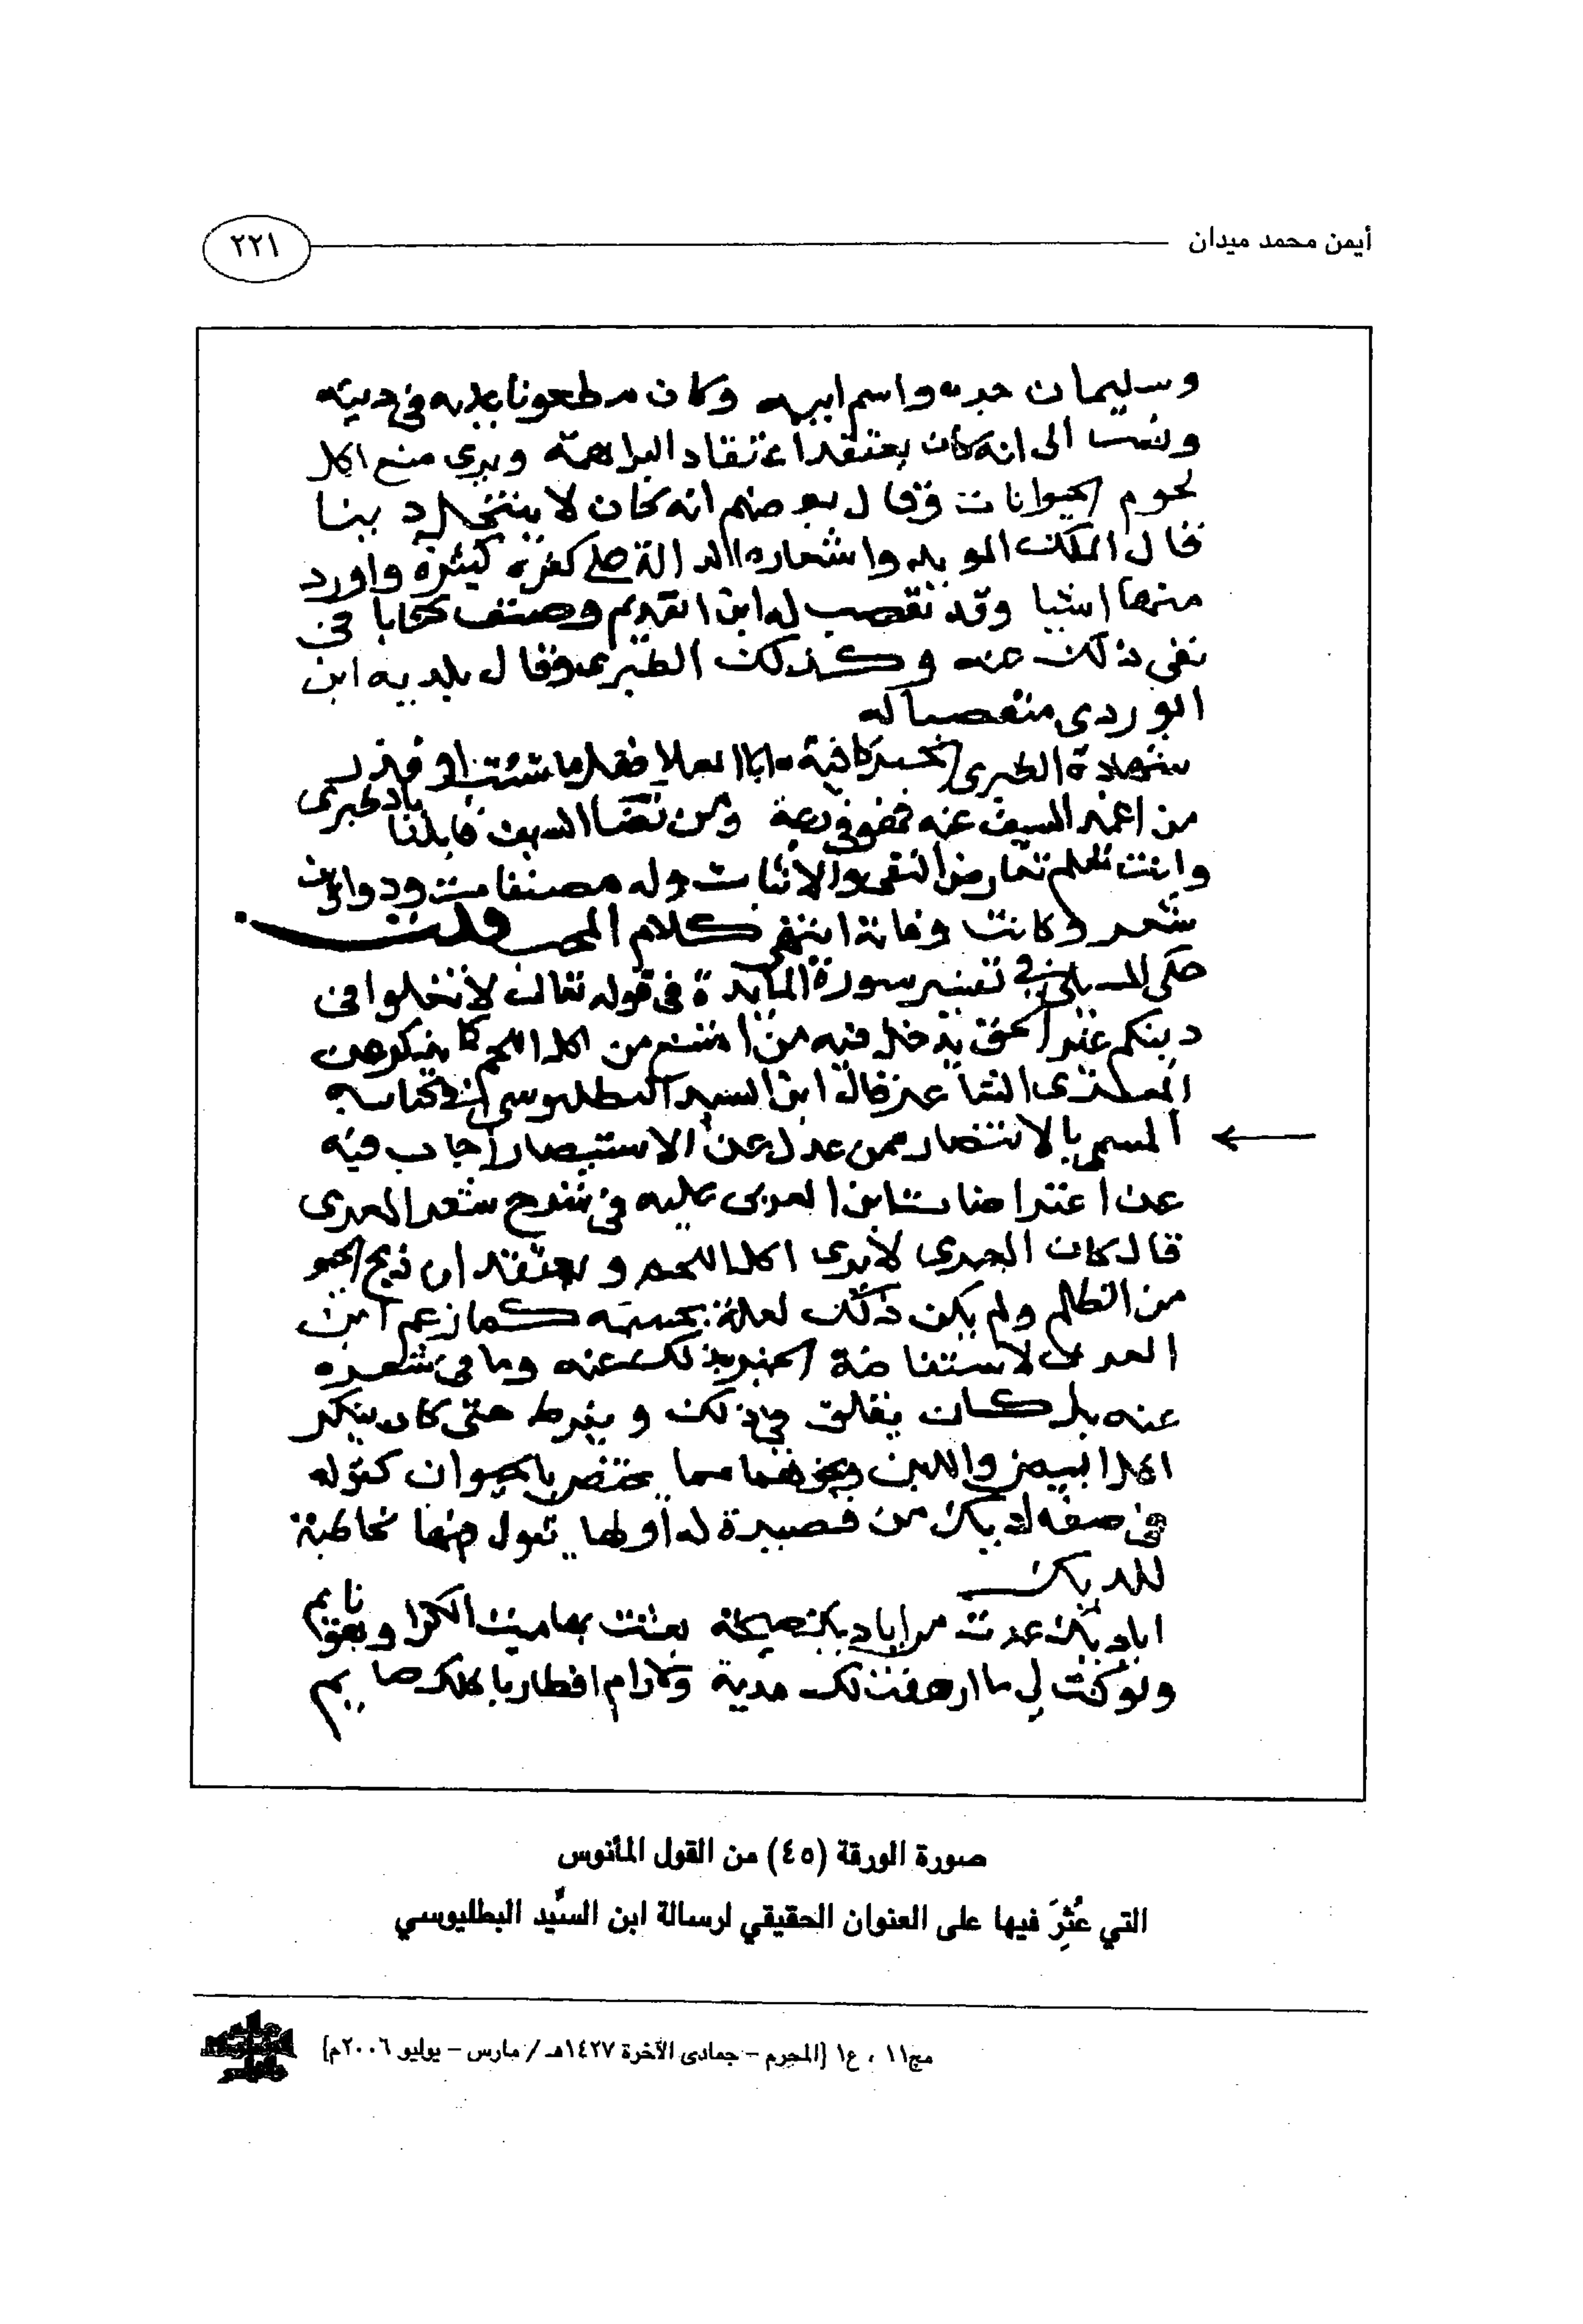 أيمن محمد ميدان
٢٢١
وسليمان جده واسم ابيه وكان مطعونا عليه في دينه
ونسب الى انه كان يعتقد اعتقاد البراهمة ويرى منع اكل
لحوم الحيوانات وقال بعضهم انه كان لا ينتحل دينا
قال الملك المويد واشعاره الدالة على كفره كثيرة واورد
منها اشيا وقد تعصب له ابن العديم وصنف كتابا في
نفي ذلك عنه وكذلك الطبري وقال بلديه ابن
الوردي متعصبا له
شهادة الطبري الحبر كافية ابا العلا فقل ما شئت او فذر
من اغمد السيف عنه فهو في دعة ومن نضا السيف قابلنا بالطبري
وانت تعلم تعارض النفي والاثبات وله مصنفات ودواوين
شعر وكانت وفاته انتهى كلام قلت
حكى في تفسير سورة المايدة في قوله تعالى لا تغلوا في
دينكم غير الحق يدخل فيه من امتنع من اكل اللحم كما
المعري الشاعر قال ابن السيد البطليوسي في كتابه
المسمى بالانتصار ممن عدل عن الاستبصار اجاب فيه
عن اعتراضات ابن العربي عليه في شرح شعر المعري
قال كان المعري لا يرى اكل اللحم ويعتقد ان ذبح الحيو
من الظلم ولم يكن ذلك لعلة بجسمه كما زعم ابن
العربي لاستفاضة الخبر بذلك عنه وما في شعره
عنه بل كان يغلو في ذلك ويفرط حتى كان ينكر
اكل البيض واللبن ونحوهما مما يختص بالحيوان كقوله
في صفة الديك من قصيدة له اولها يقول فيها مخاطبة
للديك
ايا ديك عدت من اياديك صيحة بعثت بها ميت الكرا وهو نايم
ولو كنت لي ما ارهفت لك مدية ولا رام افطارا باكلك صايم
صورة الورقة (٤٥) من القول المأنوس
التي عُثِرَ فيها على العنوان الحقيقي لرسالة ابن السِّيد البطليوسي
مج١١ ، ع١ [المحرم – جمادى الآخرة ١٤٢٧هـ / مارس – يوليو ٢٠٠٦م]